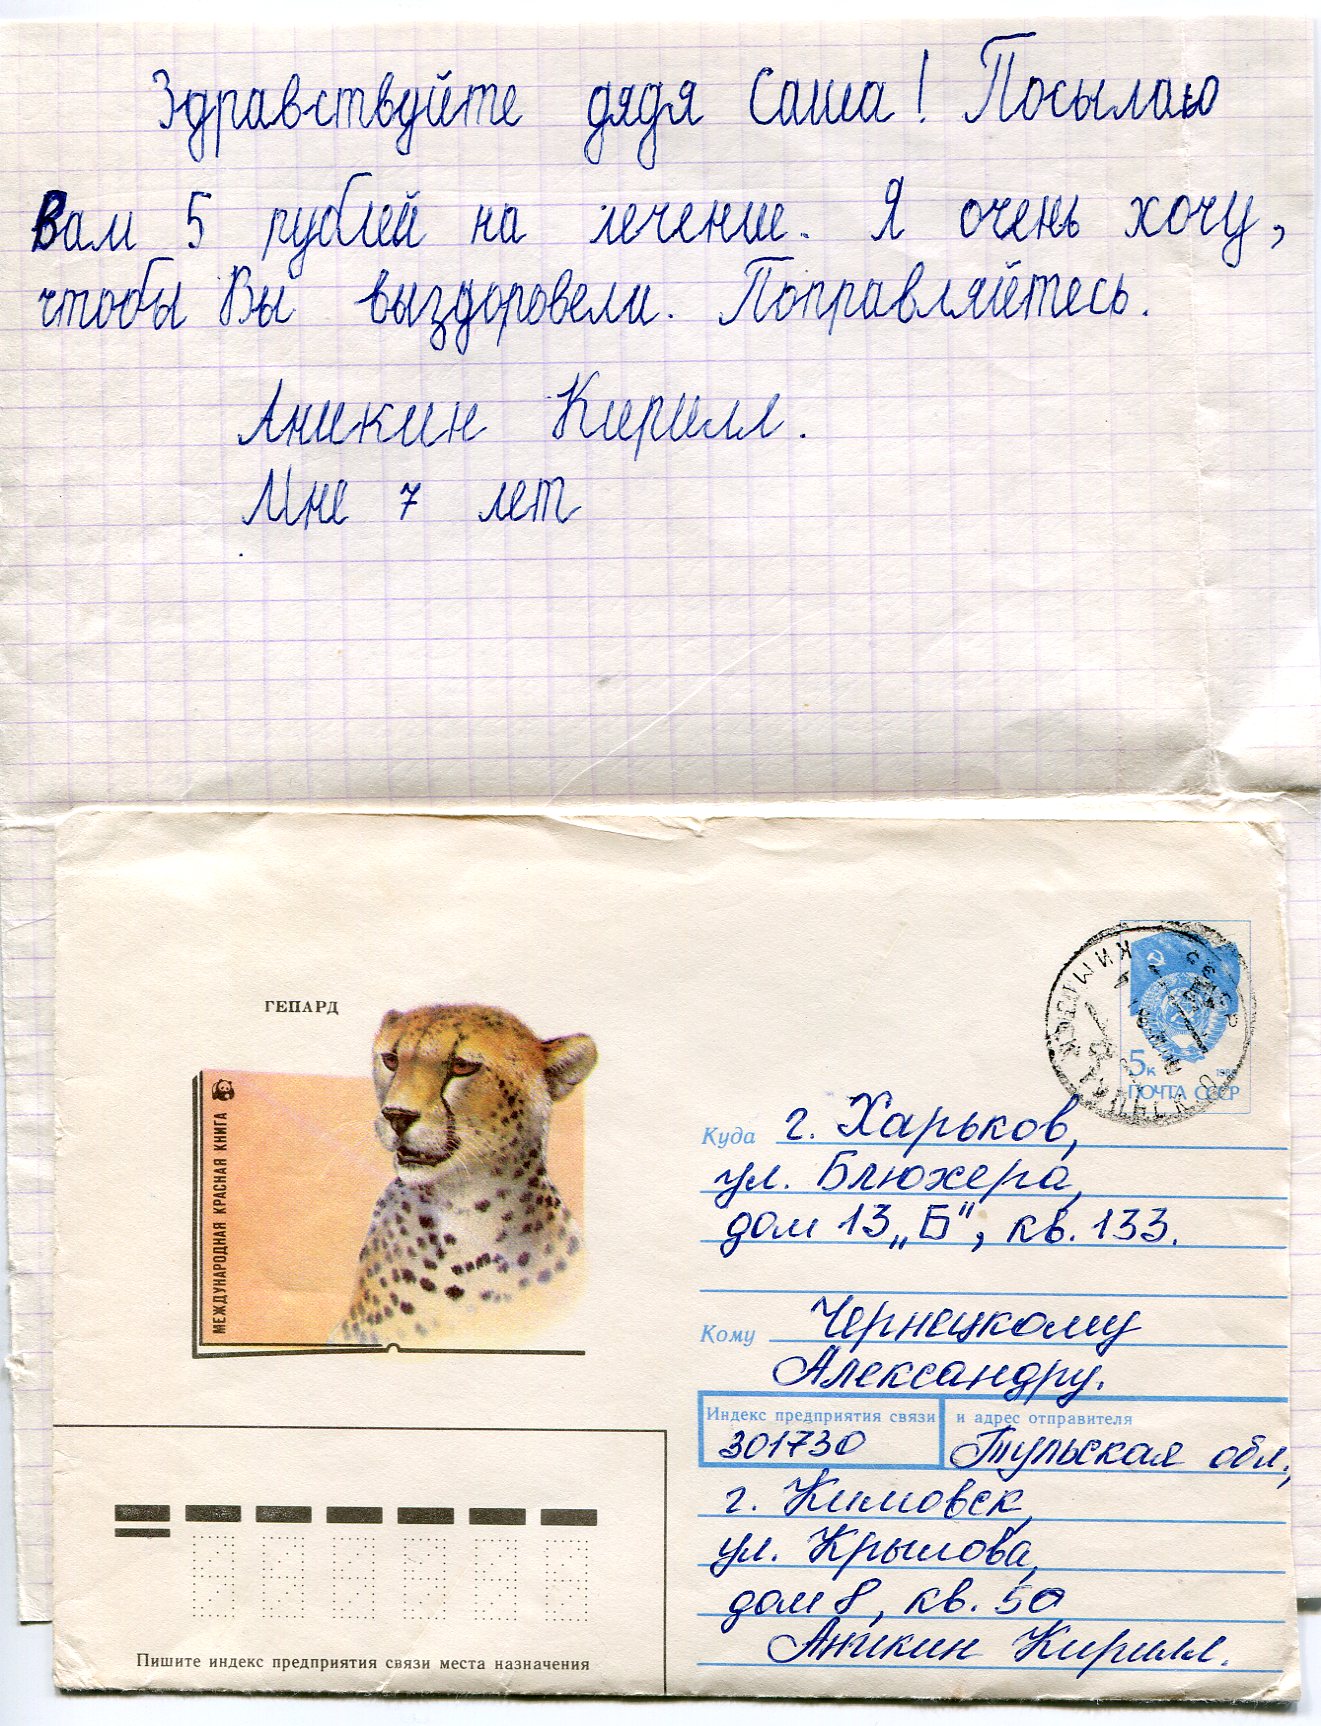 Здравствуйте дядя Саша! Посылаю
Вам 5 рублей на лечение. Я очень хочу,
чтобы Вы выздоровели. Поправляйтесь.
Аникин Кирилл.
Мне 7 лет
ГЕПАРД
МЕЖДУНАРОДНАЯ КРАСНАЯ КНИГА
КИМОВСК
ТУЛЬСК О
5к
ПОЧТА СССР
Куда г. Харьков,
ул. Блюхера,
дом 13 „Б“, кв. 133.
Кому Чернецкому
Александру.
Индекс предприятия связи и адрес отправителя
301730 Тульская обл.,
г. Кимовск,
ул. Крылова,
дом 8, кв. 50
Аникин Кирилл.
Пишите индекс предприятия связи места назначения